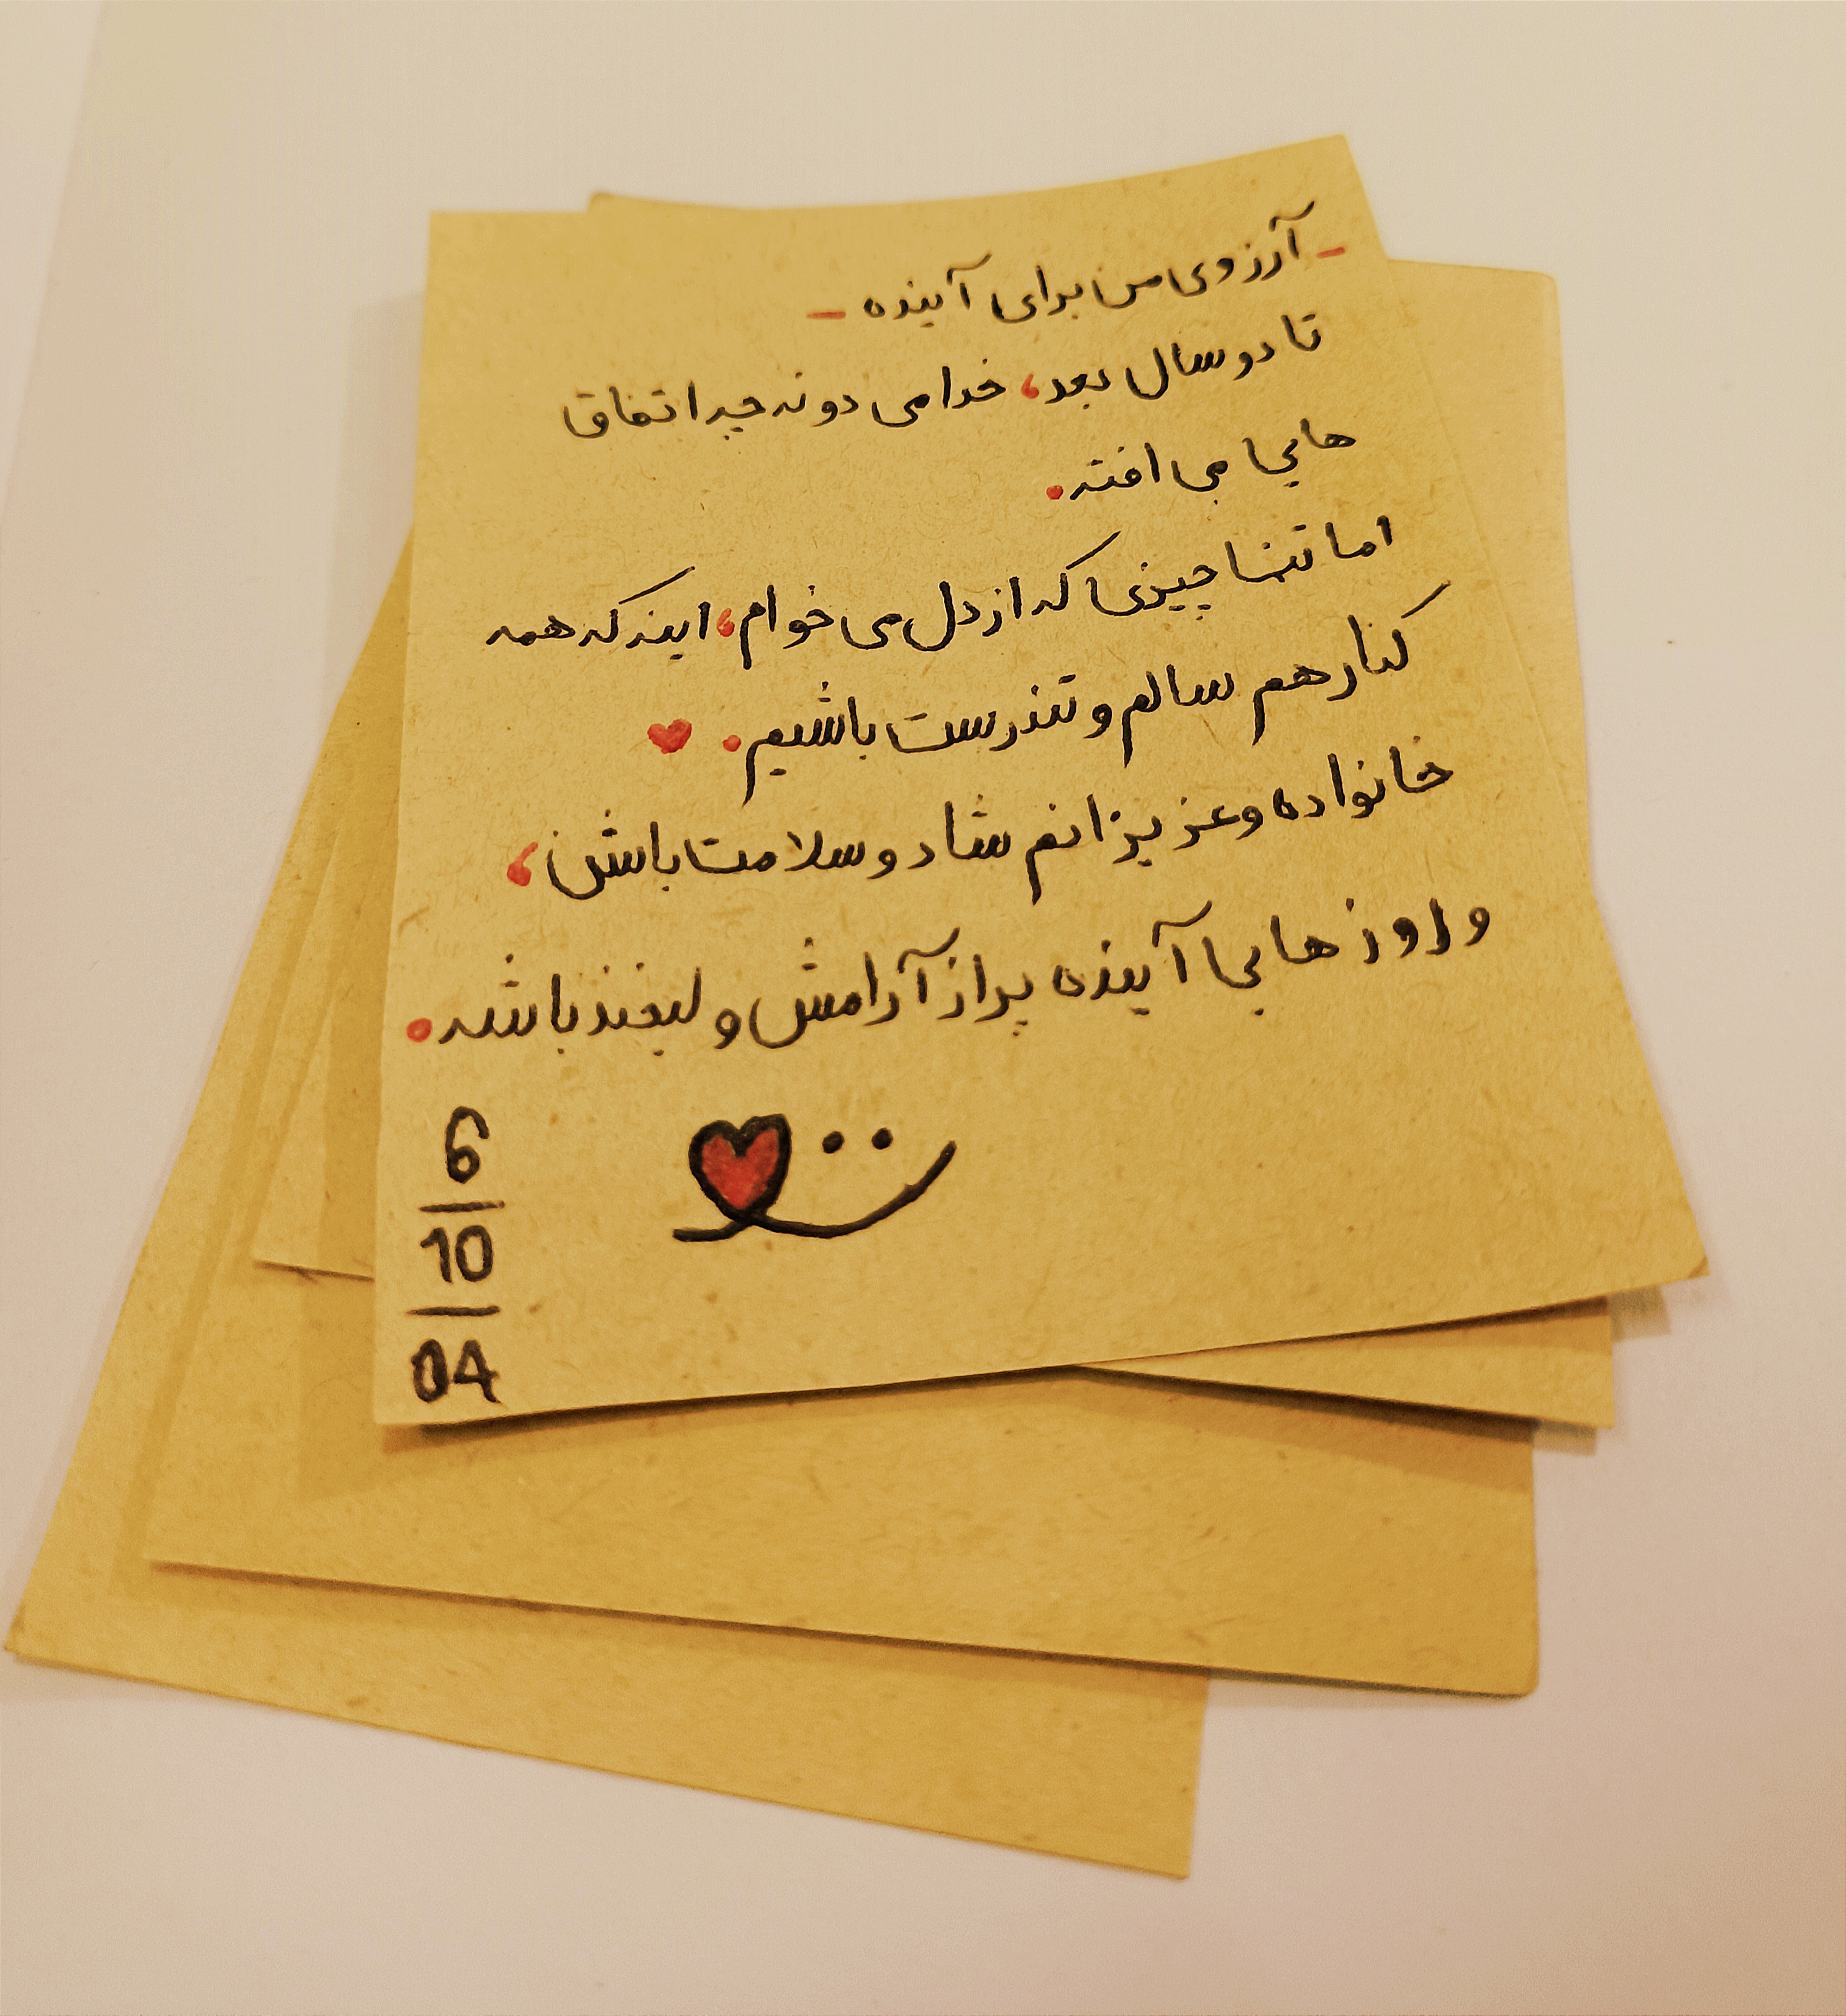 - آرزوی من برای آینده -
تا دو سال بعد، خدا می دونه چه اتفاق
هایی می افته.
اما تنها چیزی که از دل می خوام، اینه که همه
کنار هم سالم و تندرست باشیم. ♥
خانواده و عزیزانم شاد و سلامت باشن،
و روز هایی آینده پر از آرامش و لبخند باشه.
6
10
04